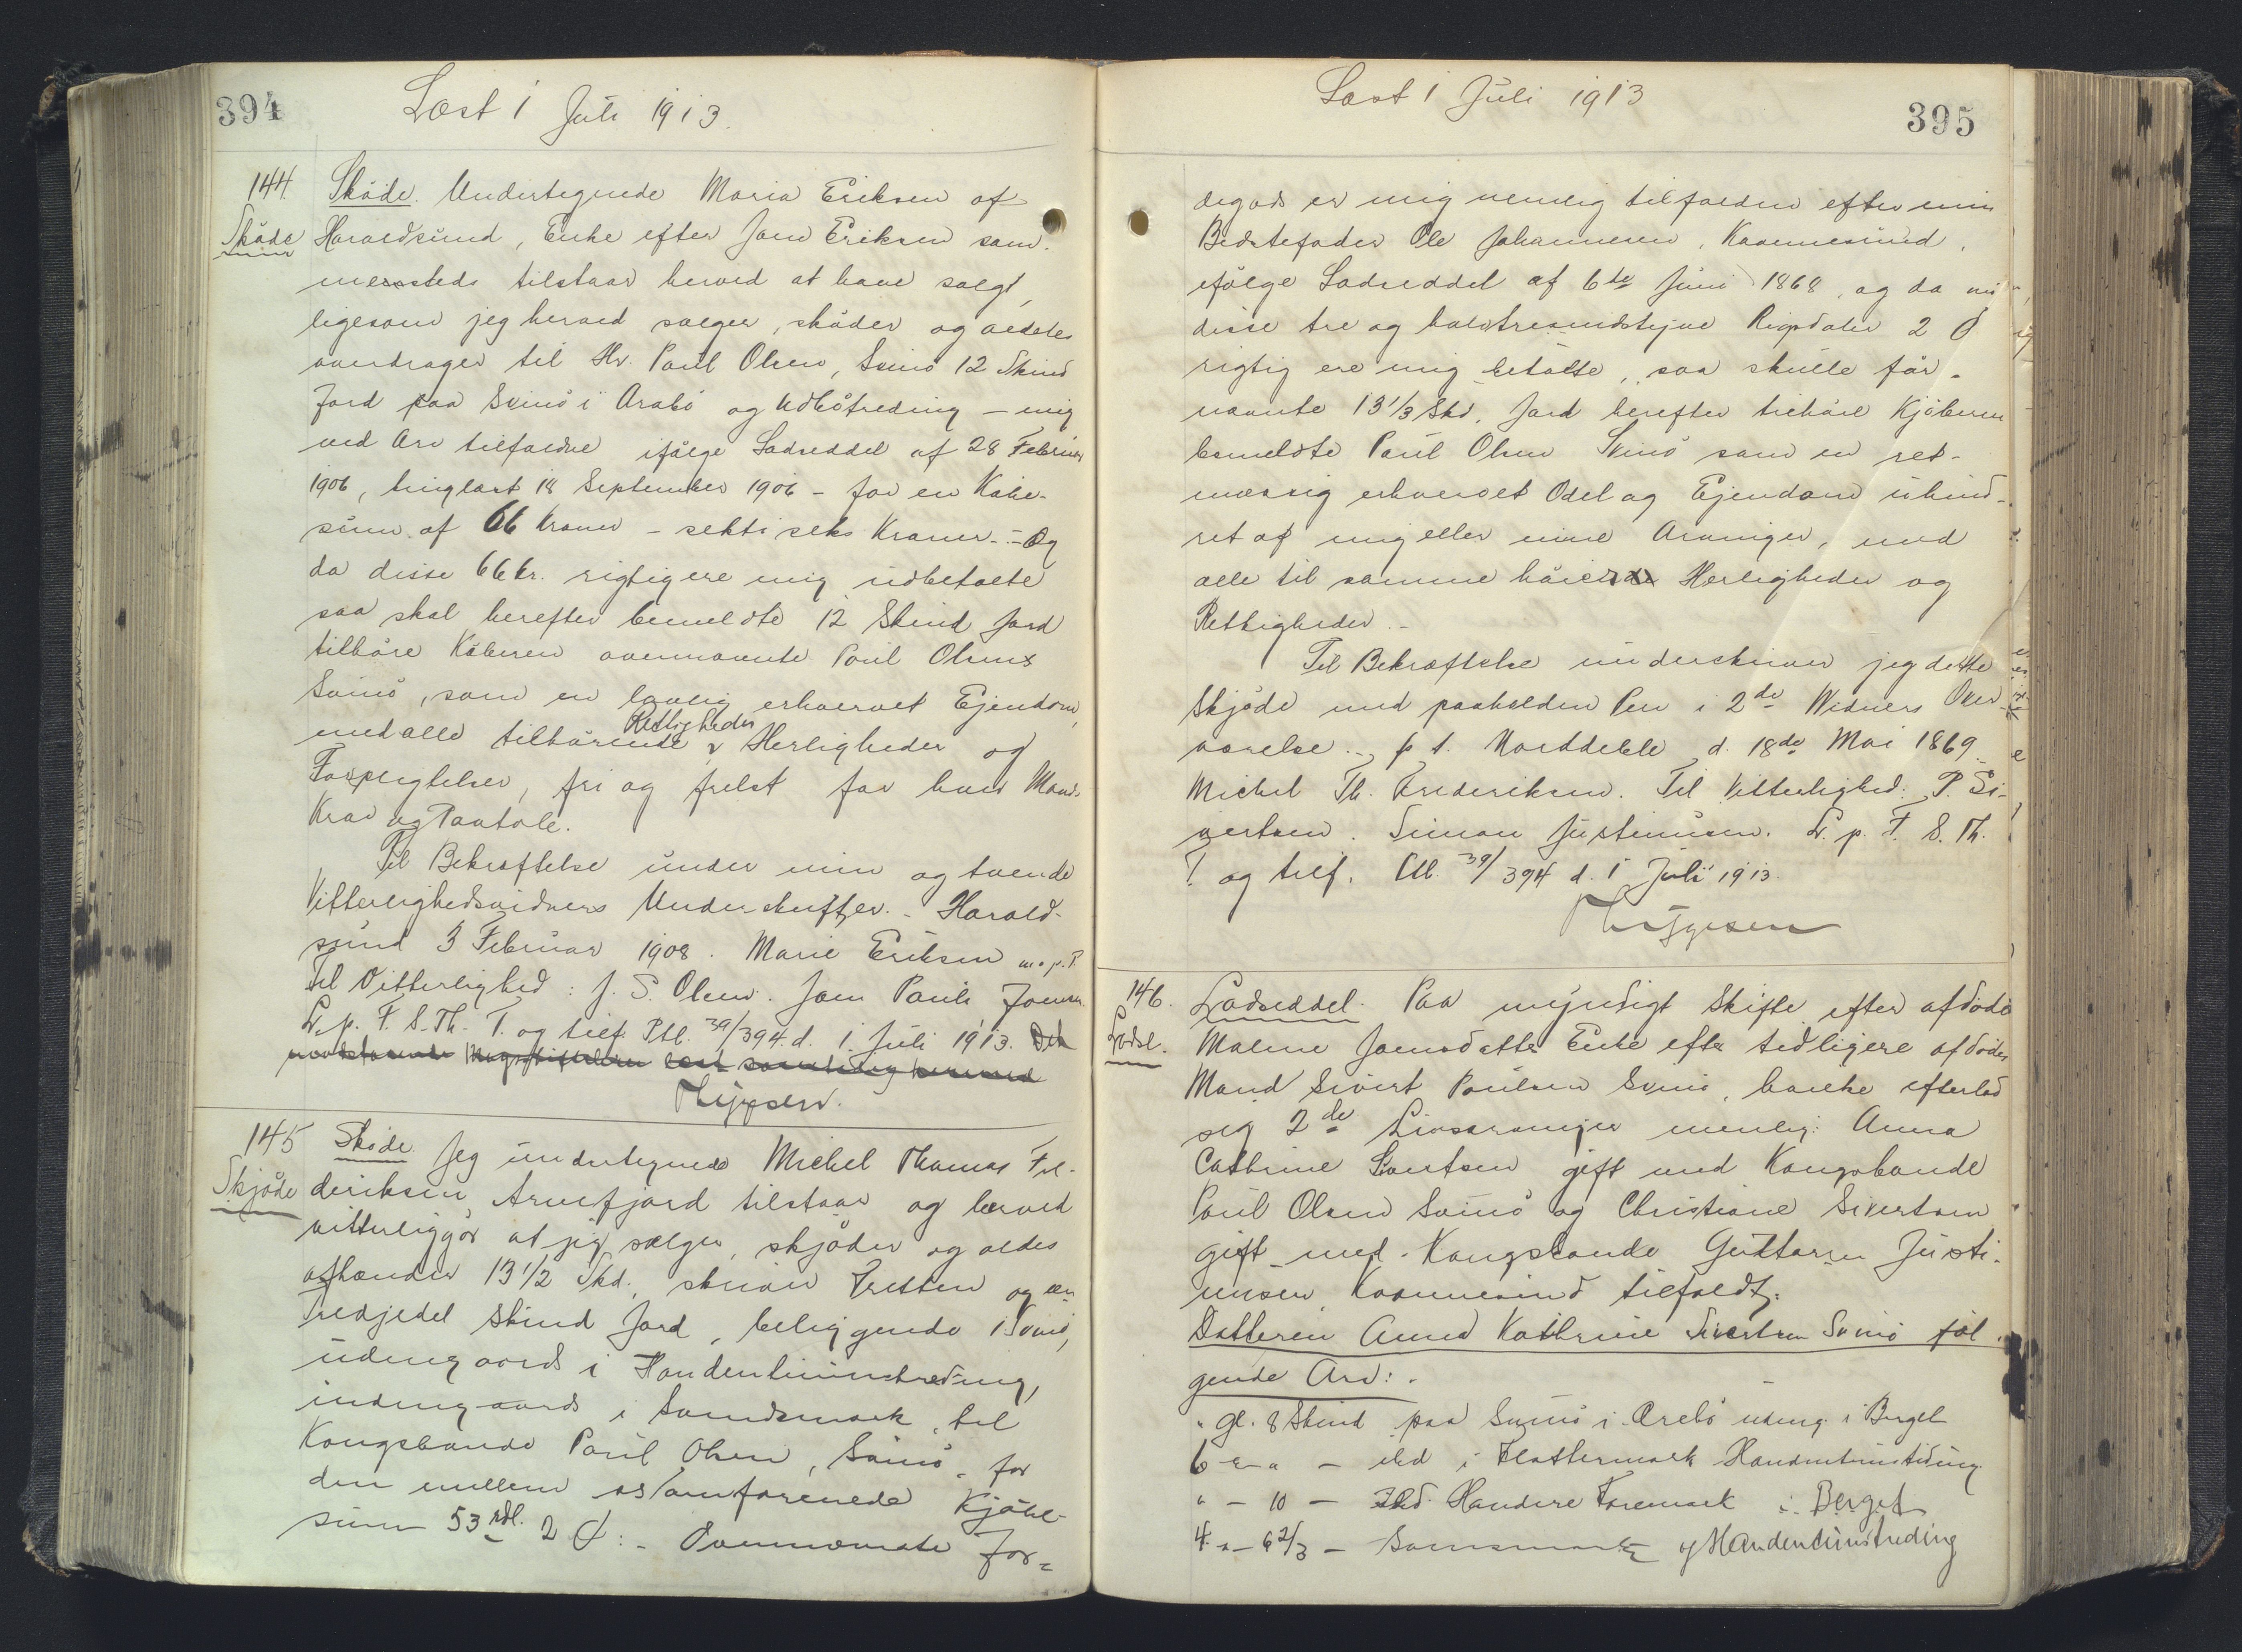 394
Læst 1 Juli 1913.
144.
Skøde
Skøde. Undertegnede Maria Eriksen af
Haraldsund, Enke efter Joen Eriksen sam-
mensteds tilstaar herved at have solgt,
ligesom jeg herved sælger, skøder og aldeles
overdrager til Hr. Poul Olsen, Svinø 12 Skind
Jord paa Svinø i Arabø og Udbøtreding – mig
ved Arv tilfaldne ifølge Lodseddel af 28 Februar
1906, tinglæst 18 September 1906 – for en Købe-
sum af 66 Kroner – sekti seks Kroner. – Og
da disse 66 kr. rigtig ere mig udbetalte
saa skal herefter bemeldte 12 Skind Jord
tilhøre Køberen ovennævnte Poul Olsen
Svinø, som en lovlig erhvervet Ejendom,
Rettigheder
med alle tilhørende Herligheder og
Forpligtelser, fri og frelst for hver Mands
Krav og Paatale.
Til Bekræftelse under min og tvende
Vitterlighedsvidners Underskrifter. – Harald-
sund 3 Februar 1908. Marie Eriksen m. p. P.
Til Vitterlighed: J. S. Olsen. Joen Pauli Joensen.
L. p. F. S. Th. T. og tilf. Ptl. 39/394 d. 1. Juli 1913. Det
læst samtidig hermed
145
Skjøde
Skøde. Jeg undertegnede Michel Thomas Fre-
deriksen Arnefjord tilstaar og herved
vitterliggør at jeg sælger, skjøder og aldes
afhænder 13 1/2 Skd, skriver Tretten og en
Tredjedel Skind Jord, beliggende i Svinø,
udengaards i Handenluinstreding,
indengaards i Sandsmark, til
Kongsbonde Poul Olsen, Svinø, for
den mellem os omforenede Kjøbe-
sum 53 rdl. 2 ₰: – Ovennævnte Jor-
Læst 1 Juli 1913
395
degods er mig nemlig tilfalden efter min
Bedstefader Ole Johannesen, Kvannesund,
ifølge Lodseddel af 6te Juni 1868, og da nu
disse tre og halvtresindstyve Rigsdaler 2 ₰
rigtig ere mig betalte, saa skulle før-
nævnte 13 1/3 Skd. Jord herefter tilhøre Kjøberen
bemeldte Poul Olsen Svinø som en ret-
mæssig erhvervet Odel og Ejendom uhind-
ret af mig eller mine Arvinger, med
alle til samme hørende Herligheder og
Rettigheder. –
Til Bekræftelse underskriver jeg dette
Skjøde med paaholden Pen i 2de Widners Over-
værelse. – p. t. Norddeble d. 18de Mai 1869.
Michel Th. Frederiksen. Til Vitterlighed: P. Si-
vertsen. Simon Justinusen. L. p. F. S. Th.
T og tilf. Ptl. 39/394 d. 1 Juli 1913.
146.
Lodsl.
Lodseddel. Paa myndigt Skifte efter afdøde
Malene Joensdatter Enke efter tidligere afdøde
Mand Sivert Poulsen Svinø, hvilke efterlod
sig 2de Livsarvinger nemlig: Anna
Cathrine Sivertsen gift med Kongsbonde
Poul Olsen Svinø og Christiane Sivertsen
gift med Kongsbonde Guttorm Justi-
nusen Kvannesund tilfaldt:
Datteren Anna Kathrine Sivertsen Svinø føl-
gende Arv:
" gl. 8 Skind paa Svinø i Arebø udeng. i Berget
6 - " - ibd i Flattermark Handenluinstreding
" - 10 - Ibd. Handere Foremark i Berget
4 - " - 6 2/3 - Samsmark og Handenluinstreding